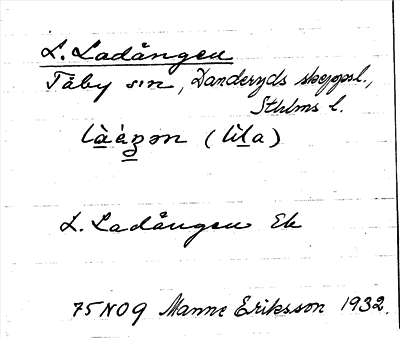 L. Ladängen
Täby sn, Danderyds skeppsl.,
Sthlms l.
(lila)
L. Ladängen Ek
75 NO 9 Manne Eriksson 1932.